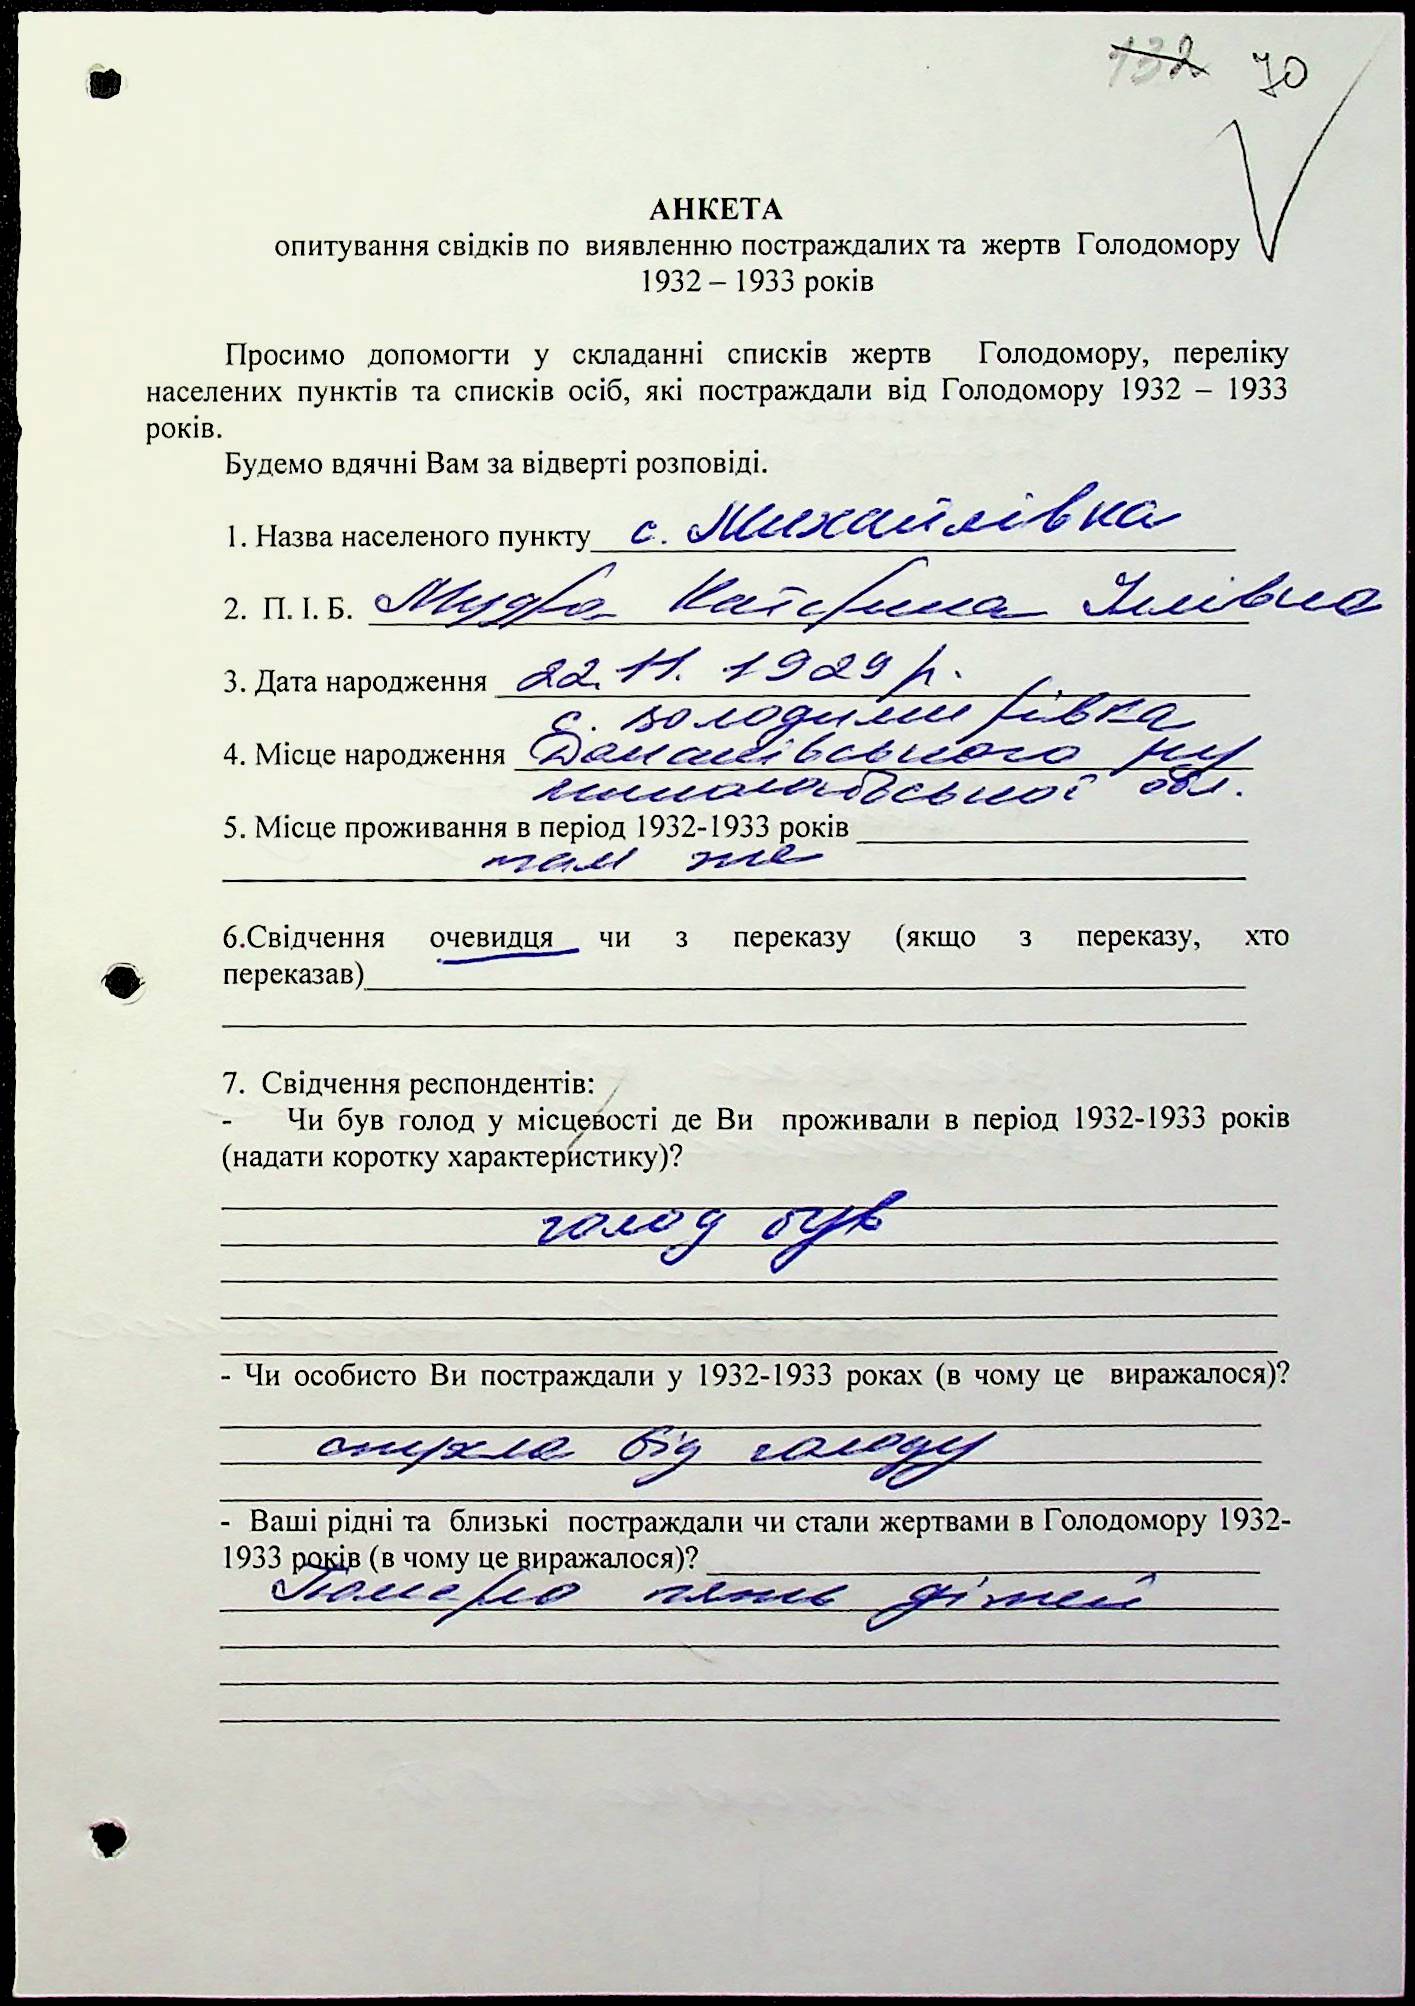 132 70
АНКЕТА
опитування свідків по виявленню постраждалих та жертв Голодомору
1932 – 1933 років
Просимо допомогти у складанні списків жертв Голодомору, переліку
населених пунктів та списків осіб, які постраждали від Голодомору 1932 – 1933
років.
Будемо вдячні Вам за відверті розповіді.
1. Назва населеного пункту с. Михайлівка
2. П. І. Б. Мудра Катерина Іллівна
3. Дата народження 22.11.1929 р.
с. Володимирівка
4. Місце народження Доманівського р-ну
миколаївської обл.
5. Місце проживання в період 1932-1933 років
там же
6.Свідчення очевидця чи з переказу (якщо з переказу, хто
переказав)
7. Свідчення респондентів:
- Чи був голод у місцевості де Ви проживали в період 1932-1933 років
(надати коротку характеристику)?
голод був
- Чи особисто Ви постраждали у 1932-1933 роках (в чому це виражалося)?
опухла від голоду
- Ваші рідні та близькі постраждали чи стали жертвами в Голодомору 1932-
1933 років (в чому це виражалося)?
Померло пять дітей